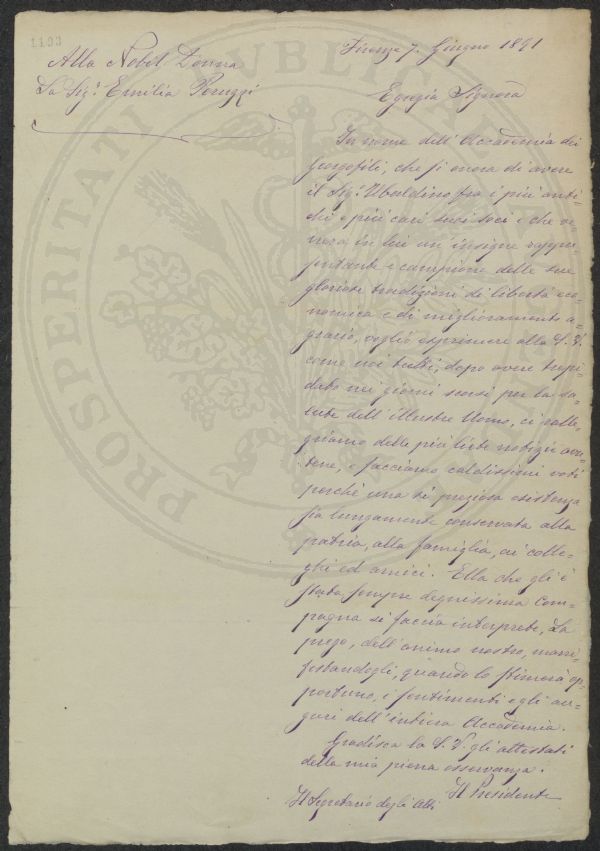 1193
Firenze 7. Giugno 1891
Alla Nobil Donna
La Sig.ª Emilia Peruzzi
Egregia Signora
In nome dell'Accademia dei
Georgofili, che si onora di avere
il Sig.r Ubaldino fra i più anti-
chi e più cari suoi soci e che ve-
nera in lui un'insigne rappre-
sentante e campione delle sue
gloriose tradizioni di libertà eco-
nomica e di miglioramento a-
grario, voglio esprimere alla S. V.
come noi tutti, dopo avere trepi-
dato nei giorni scorsi per la sa-
lute dell'illustre Uomo, ci ralle-
griamo delle più liete notizie
e facciamo caldissimi voti
perchè una sì preziosa esistenza
sia lungamente conservata alla
patria, alla famiglia, ai colle-
ghi ed amici. Ella che gli è
stata sempre degnissima Com-
pagna si faccia interprete, La
prego, dell'animo nostro, mani-
festandogli, quando lo stimerà op-
portuno, i sentimenti e gli au-
guri dell'intiera Accademia.
Gradisca la S. V. gli attestati
della mia piena osservanza.
Il Presidente
Il Segretario degli Atti
PROSPERITATI PUBLICAE